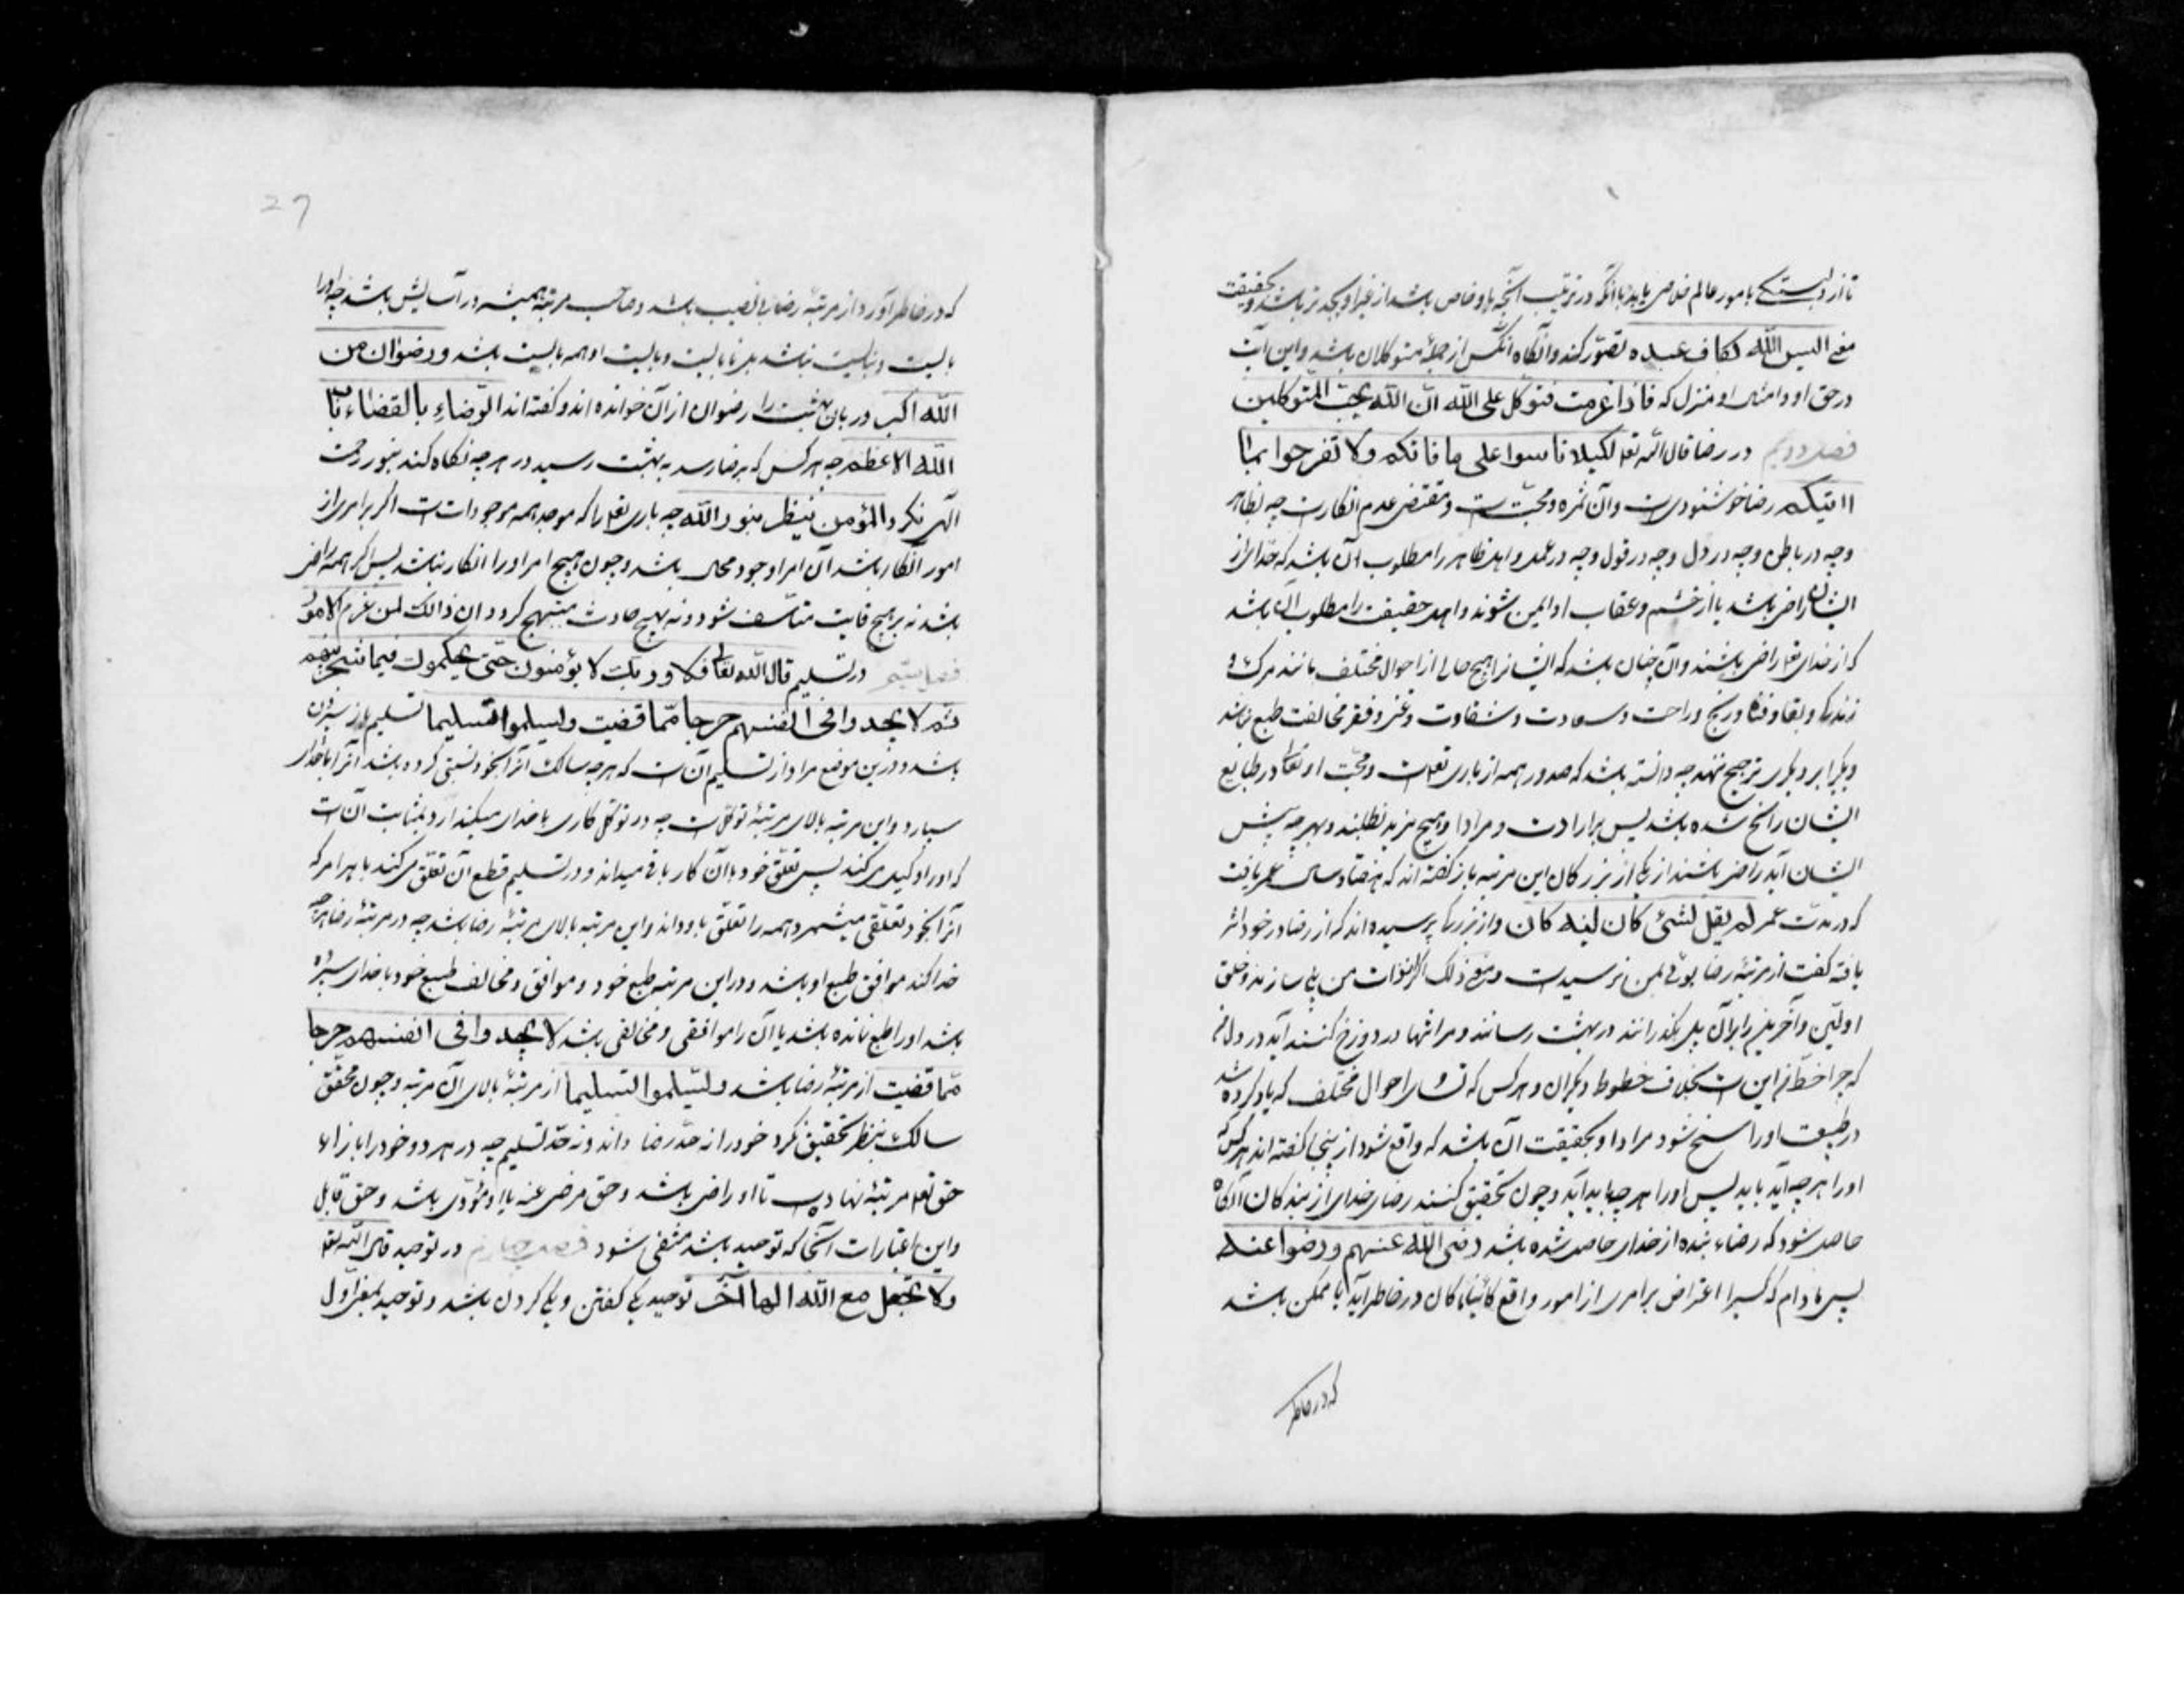 تا از دل بستگی بامور عالم خلاص یابد با آنکه در ترتیب آنچه باو خاص باشد از غیر او بجد تر باشد و بحقیقت
معنی الیس الله بکاف عبده تصور کند و آنگاه آنکس از جملهٔ متوکلان باشد و این آیت
در حق او و امثال او منزل که فاذا عزمت فتوکل علی الله انّ الله یحبّ المتوکلین
فصل دویم در رضا قال الله تعالی لکیلا تاسوا علی ما فاتکم ولا تفرحوا بما
اتیکم رضا خوشنودیست و آن ثمرهٔ محبّتست و مقتضی عدم انکارست چه بظاهر
و چه در باطن و چه در دل و چه در قول و چه در عمل و اهل ظاهر را مطلوب آن باشد که خدا از
ایشان راضی باشد تا از خشم و عقاب او ایمن شوند و اهل حقیقت را مطلوب آن باشد
که از خدای تعالی راضی باشند و آن چنان باشد که ایشانرا هیچ حالی از احوال مختلف مانند مرگ و
زندگی و بقا و فنا و رنج و راحت و سعادت و شقاوت و غنی و فقر مخالفت طبع نباشد
و یکیرا بر دیگری ترجیح ننهند چه دانسته باشند که صدور همه از باری تعالیست و محبّت او تعالی در طبایع
ایشان راسخ شده باشد پس بر ارادت و مراد او هیچ مزید نطلبند و بهر چه پیش
ایشان آید راضی باشند از یکی از بزرگان این مرتبه باز گفته اند که هفتاد سال عمر یافت
که در مدّت عمر لم یقل لشیٔ کان لیته لم کان و از بزرگی پرسیده اند که از رضا در خود اثر
یافته گفت از مرتبهٔ رضا بوئی بمن نرسیدست و مع ذلک اگر از ذات من پلی سازند و خلق
اولین و آخرین را بر آن پل بگذرانند و در بهشت رسانند و مرا تنها در دوزخ کنند آید در دلم
که چرا حظّ من این است بخلاف حظوظ دیگران و هر کس که تساوی احوال مختلف که یاد کرده شد
در طبیعت او راسخ شود مراد او بحقیقت آن باشد که واقع شود از اینجا گفته اند هر کس که
او را هر چه آید باید پس او را هر چه باید آید و چون تحقیق کنند رضای خدای از بندگان آنگاه
حاصل شود که رضاء بنده از خدای حاصل شده باشد رضی الله عنهم و رضوا عنه
پس مادام که کسیرا اعتراض بر امری از امور واقع کائناً ما کان در خاطر آید یا ممکن باشد
که در خاطر
27
که در خاطر آورد از مرتبهٔ رضا بی نصیب باشد و صاحب مرتبه همیشه در آسایش باشد چه اورا
بایست و نبایست نباشد بل نابایست و بایست او همه بایست باشد و رضوان من
الله اکبر دربان بهشت را رضوان از آن خوانده اند و گفته اند الرّضاء بالقضاء باب
الله الاعظم چه هر کس که برضا رسد به بهشت رسید در هر چه نگاه کند بنور رحمت
الهی نگرد المؤمن ینظر بنور الله چه باری تعالی را که موجد همه موجودات است اگر بر امری از
امور انکار باشد آن امر را وجود محال باشد و چون بر هیچ امر او را انکار نباشد پس از همه راضی
باشد نه بر هیچ فایت متاسّف شود و نه بهیچ حادث مبتهج گردد ان ذالک لمن عزم الامور
فصل سیّم در تسلیم قال الله تعالی فلا و ربّک لا یؤمنون حتّی یحکموک فیما شجر بینهم
ثم لا یجدوا فی انفسهم حرجا مّما قضیت و یسلموا تسلیما تسلیم باز سپردن
باشد و درین موضع مراد از تسلیم آن است که هر چه سالک آنرا بخود نسبتی کرده باشد آنرا با خدای
سپارد و این مرتبه بالای مرتبهٔ توکّل است چه در توکّل کاری با خدای میگذارد بمثابت آن است
که او را وکیل می کند پس تعلّق خود بآن کار باقی میداند و در تسلیم قطع آن تعلّق می کند تا هر امر که
آنرا بخود تعلّقی میشمرد همه را تعلّق باو داند و این مرتبه بالای مرتبهٔ رضا باشد چه در مرتبهٔ رضا هر چه
خدا کند موافق طبع او باشد و در این مرتبه طبع خود و موافق و مخالف طبع خود با خدای سپرده
باشد او را طبع نمانده باشد تا آن را موافقی و مخالفی باشد لا یجدوا فی انفسهم حرجا
مّما قضیت از مرتبهٔ رضا باشد و یسلّموا تسلیما از مرتبهٔ بالای آن مرتبه و چون محقّق
سالک بنظر تحقیق نگرد خود را نه حدّ رضا داند و نه حدّ تسلیم چه در هر دو خود را بازاء
حق تعالی مرتبهٔ نهاده است تا او راضی باشد و حق مرضی عنه یا او مؤدّی باشد و حق قابل
و این اعتبارات آنجا که توحید باشد منتفی شود فصل چهارم در توحید قال الله تعالی
ولا تجعل مع الله الها آخر توحید یکی گفتن و یکی کردن باشد و توحید بمعنی اوّل